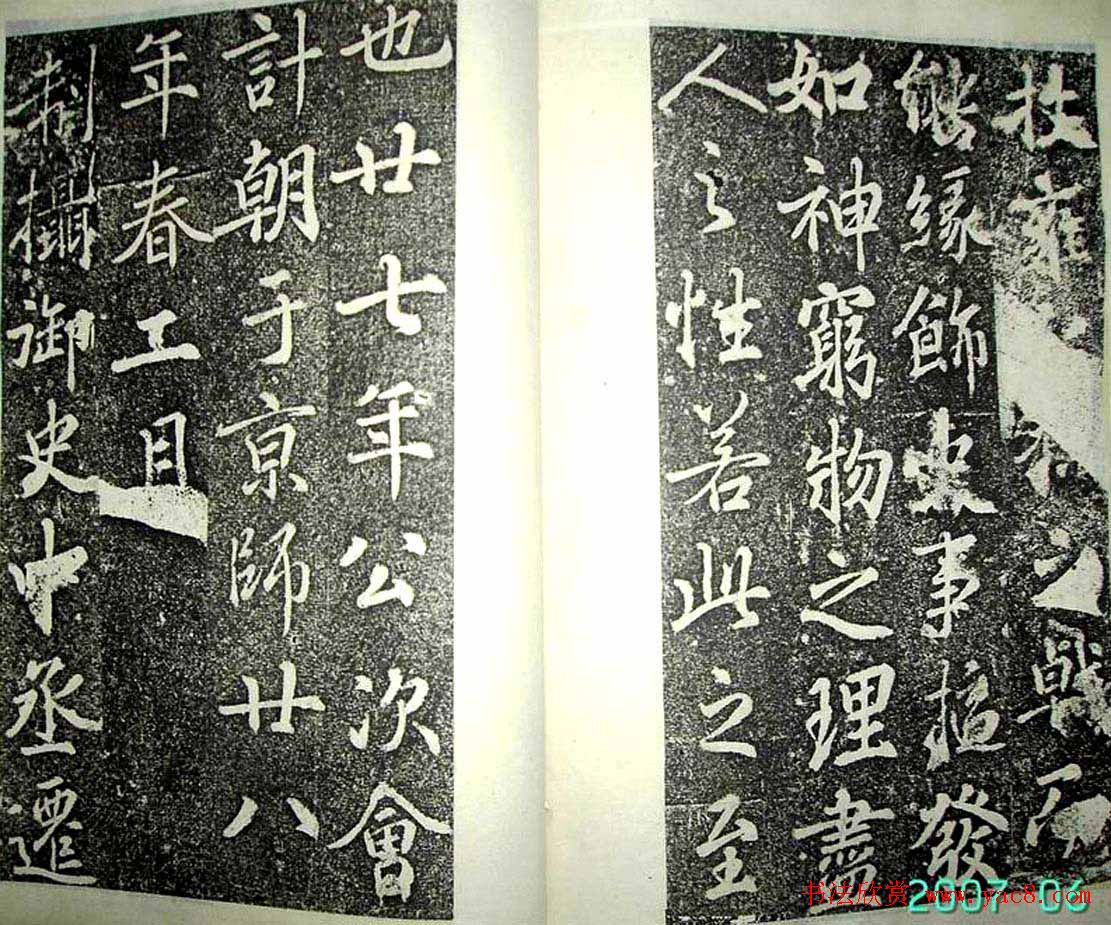 扶雍
之戟
能緣飾吏事擿發
如神窮物之理盡
人之性若此之至
也廿七年公次會
計朝于京師廿八
年春工目
制攝御史中丞遷
书法欣赏 www.yac8.com
2007 06